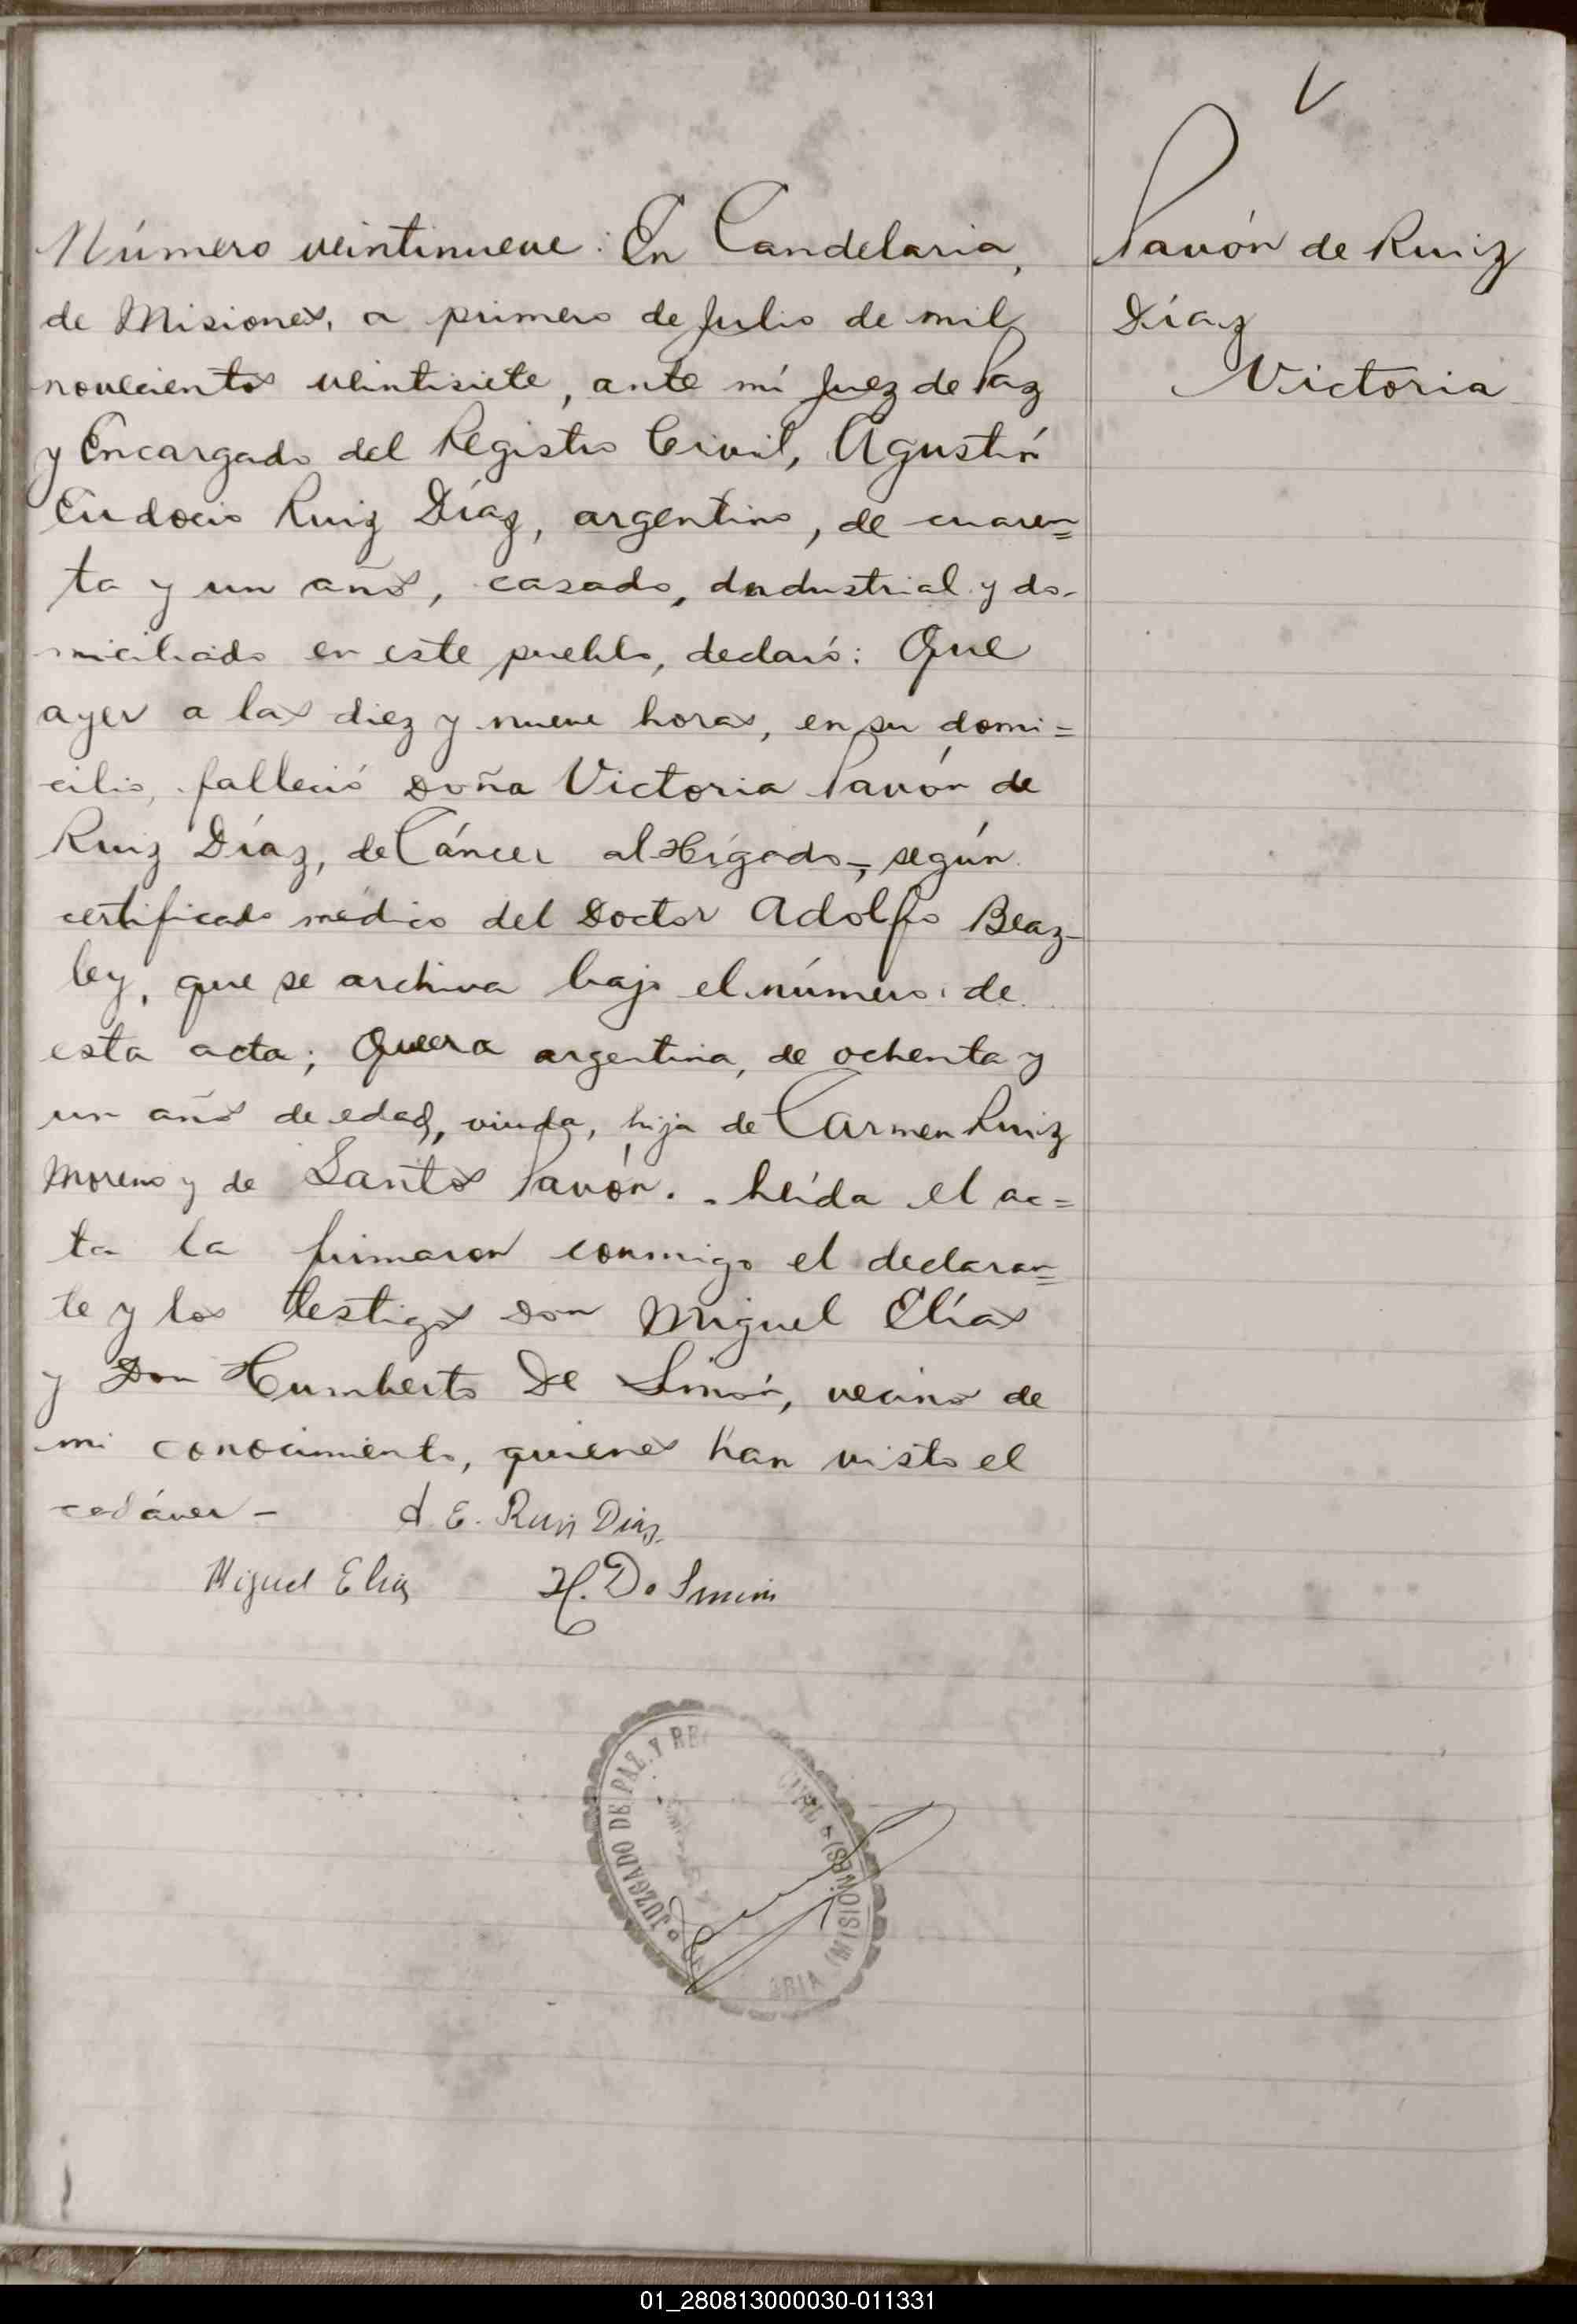 Número veintinueve: En Candelaria,
de Misiones, a primero de Julio de mil
novecientos veintisiete, ante mí Juez de Paz
y Encargado del Registro Civil, Agustín
Eudocio Ruiz Díaz, argentino, de cuaren=
ta y un años, casado, industrial y do-
miciliado en este pueblo, declaró: Que
ayer a las diez y nueve horas, en su domi=
cilio, falleció Doña Victoria Pavón de
Ruiz Díaz, de Cáncer al Hígado, según
certificado médico del Doctor Adolfo Beaz-
ley, que se archiva bajo el número de
esta acta; Que era argentina, de ochenta y
un años de edad, viuda, hija de Carmen Ruiz
Moreno y de Santos Pavón. - Leída el ac=
ta la firmaron conmigo el declaran=
te y los testigos Don Miguel Elías
y Don Humberto De Simón, vecinos de
mi conocimiento, quienes han visto el
cadáver -
A. E. Ruiz Diaz
Miguel Elias H. De Simón
Pavón de Ruiz
Díaz
Victoria
JUZGADO DE PAZ Y RE
CIVIL
ARIA (MISIONES)
01_280813000030-011331